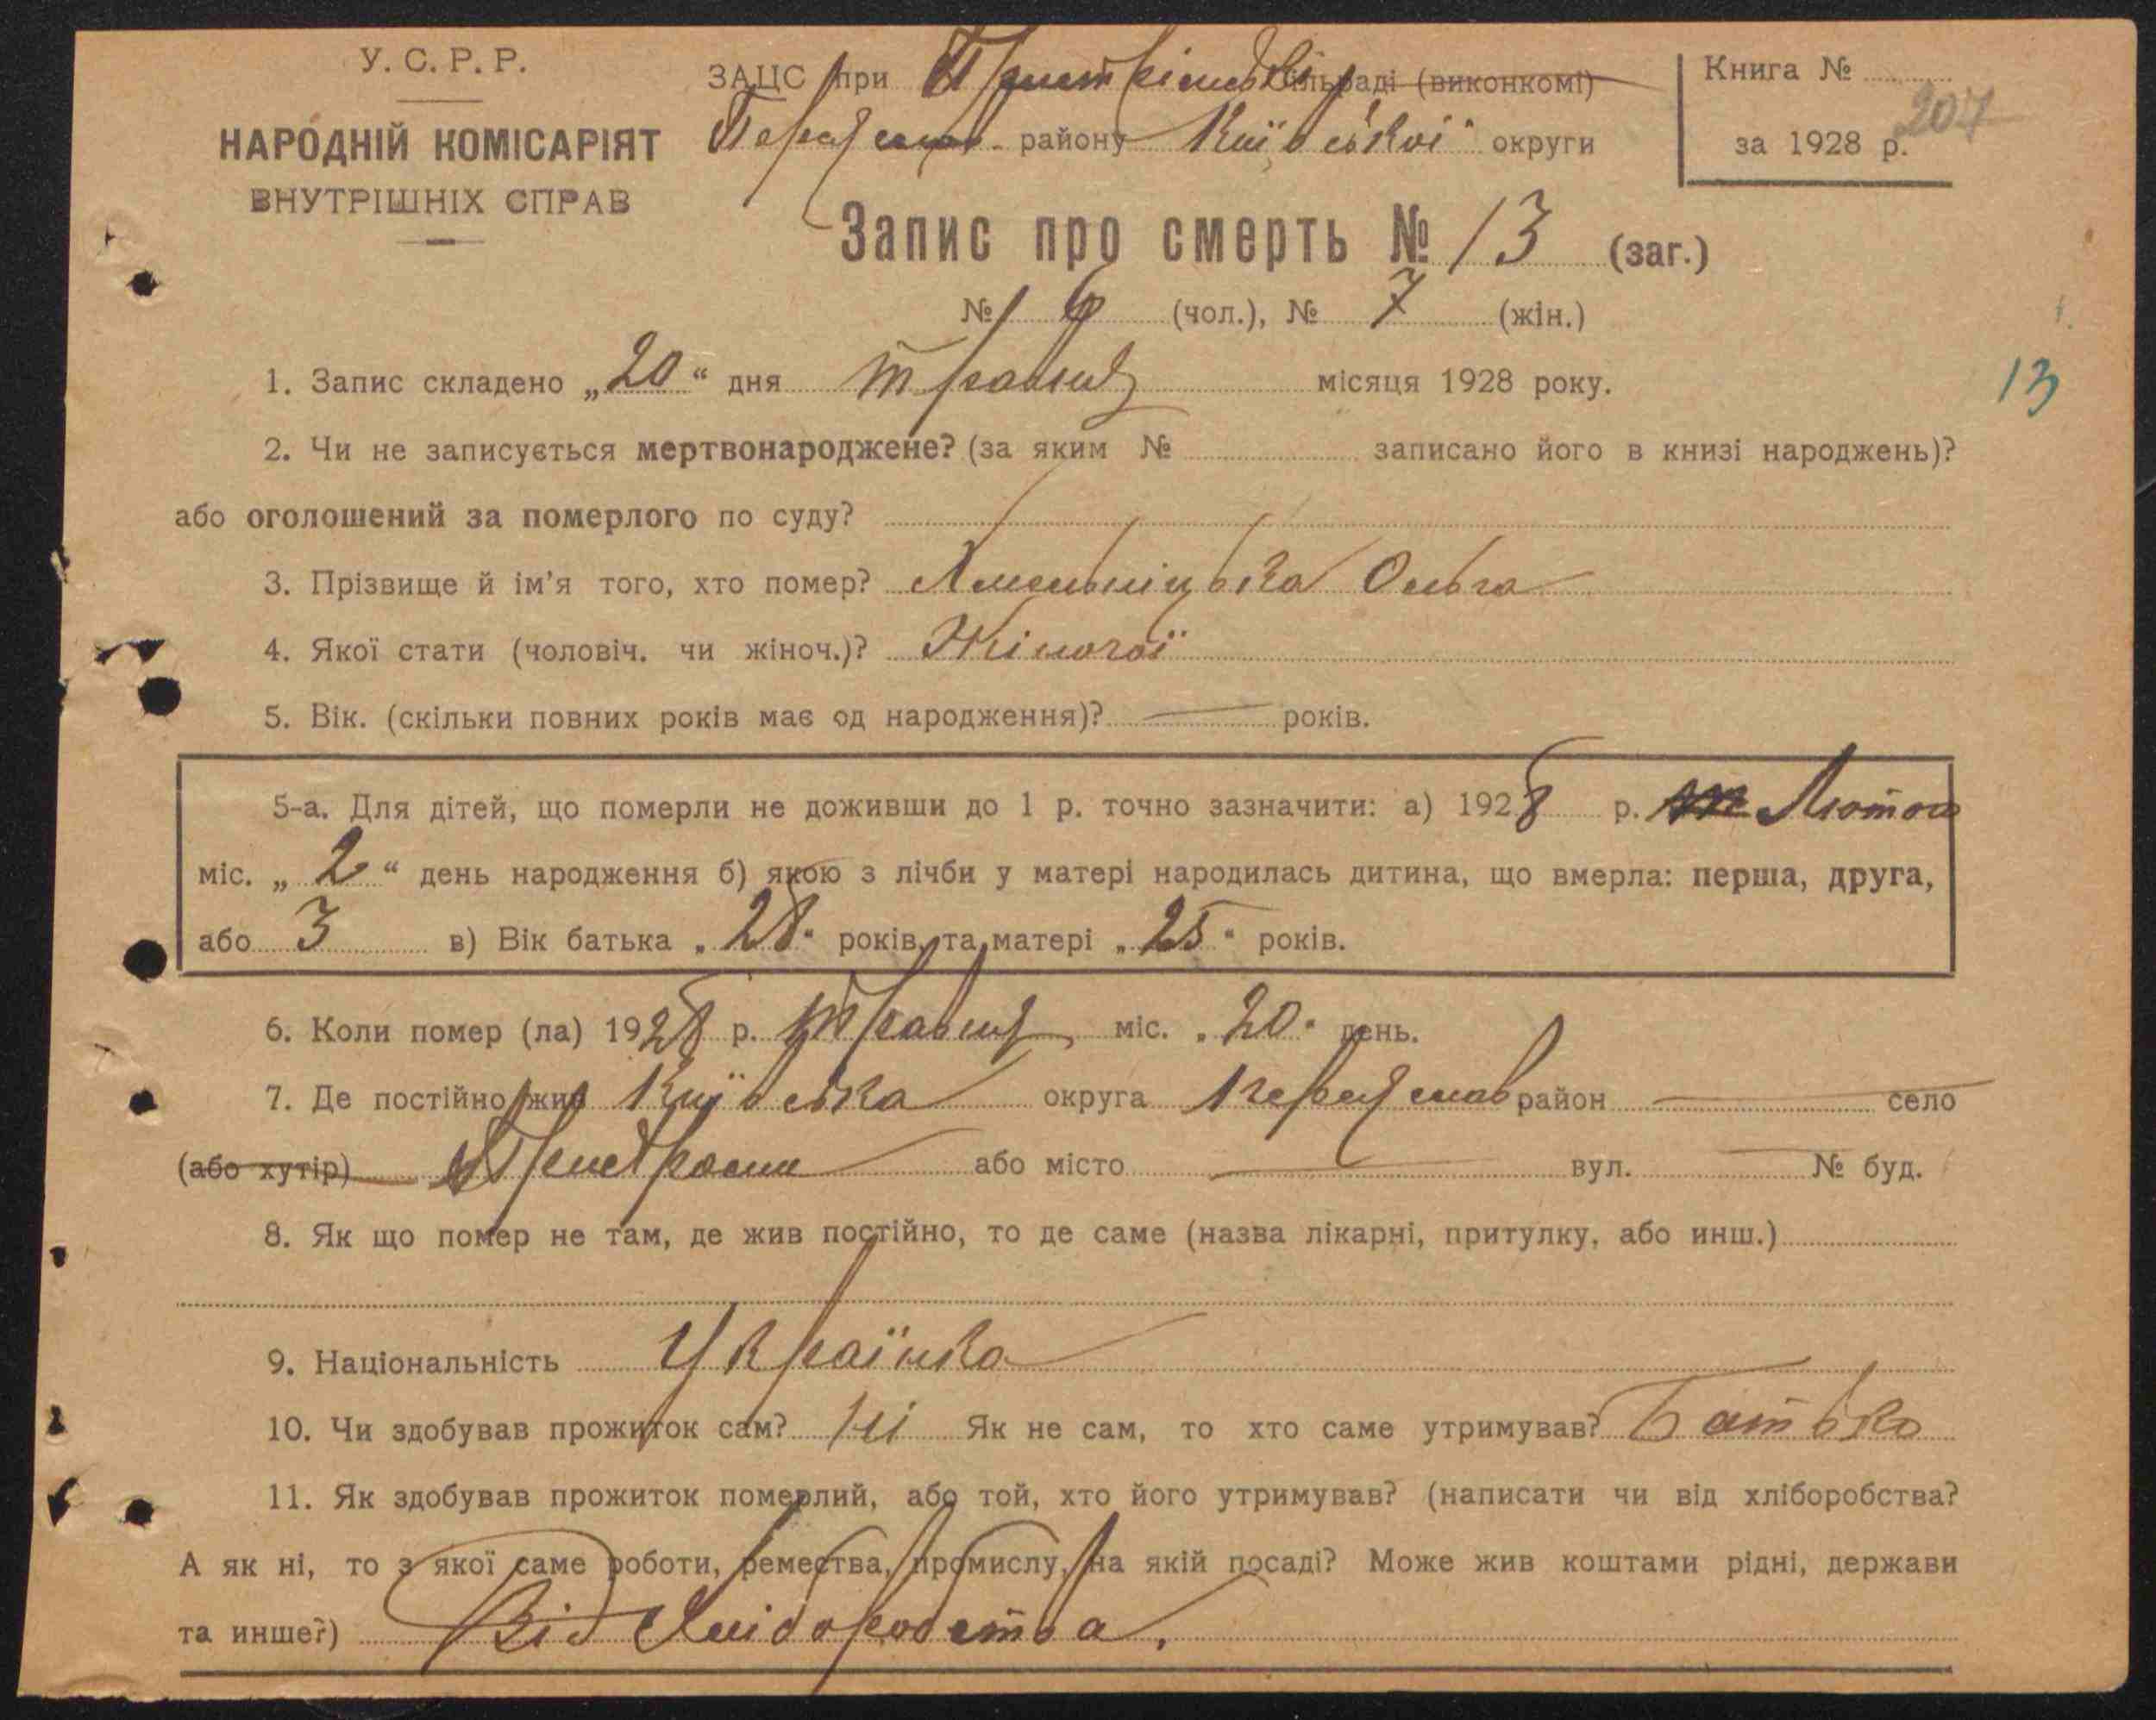 У. С. Р. Р.
НАРОДНІЙ КОМІСАРІЯТ
ВНУТРІШНІХ СПРАВ
ЗАЦС при сільраді (виконкомі)
Переяслав. району Київської округи
Книга №
207
за 1928 р.
Запис про смерть № 13 (заг.)
№ 6 (чол.), № 7 (жін.)
1. Запис складено „20“ дня травня місяця 1928 року.
13
2. Чи не записується мертвонароджене? (за яким № записано його в книзі народжень)?
або оголошений за померлого по суду?
3. Прізвище й ім'я того, хто помер? Хмельніцька Ольга
4. Якої стати (чоловіч. чи жіноч.)? Жіночої
5. Вік. (скільки повних років має од народження)? — років.
5-а. Для дітей, що померли не доживши до 1 р. точно зазначити: а) 1928 р. Лютого
міс. „2“ день народження б) якою з лічби у матері народилась дитина, що вмерла: перша, друга,
або 3 в) Вік батька „28“ років та матері „25“ років.
6. Коли помер (ла) 1928 р. травня міс. „20“ день.
7. Де постійно жив Київська округа Переяслав район — село
(або хутір) Пристроми або місто — вул. — № буд.
8. Як що помер не там, де жив постійно, то де саме (назва лікарні, притулку, або инш.)
9. Національність Українка
10. Чи здобував прожиток сам? Ні Як не сам, то хто саме утримував? Батько
11. Як здобував прожиток померлий, або той, хто його утримував? (написати чи від хліборобства?
А як ні, то з якої саме роботи, ремества, промислу, на якій посаді? Може жив коштами рідні, держави
та инше?) Від Хліборобства.